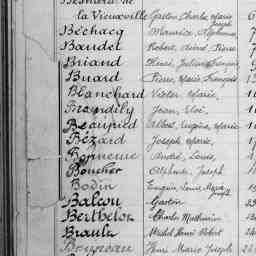 de
la Vieuxville Gaston Charles Marie Joseph
Béchacq Maurice, Alphonse
Baudet Robert, Aimé, Pierre
Briand Henri, Julien François
Buard Pierre, Marie François
Blanchard Victor Marie,
Jean, Eloi,
Beaupied Albert, Eugène, Marie
Bézard Joseph, Marie,
Bonnenne André, Louis,
Boucher Alphonse, Joseph
Bodin Eugène, Louis, Marie Joseph
Balcou Gaston
Berthelot Charles Mathurin
Brault Michel Henri Robert
Bruneau Henri Marie Joseph